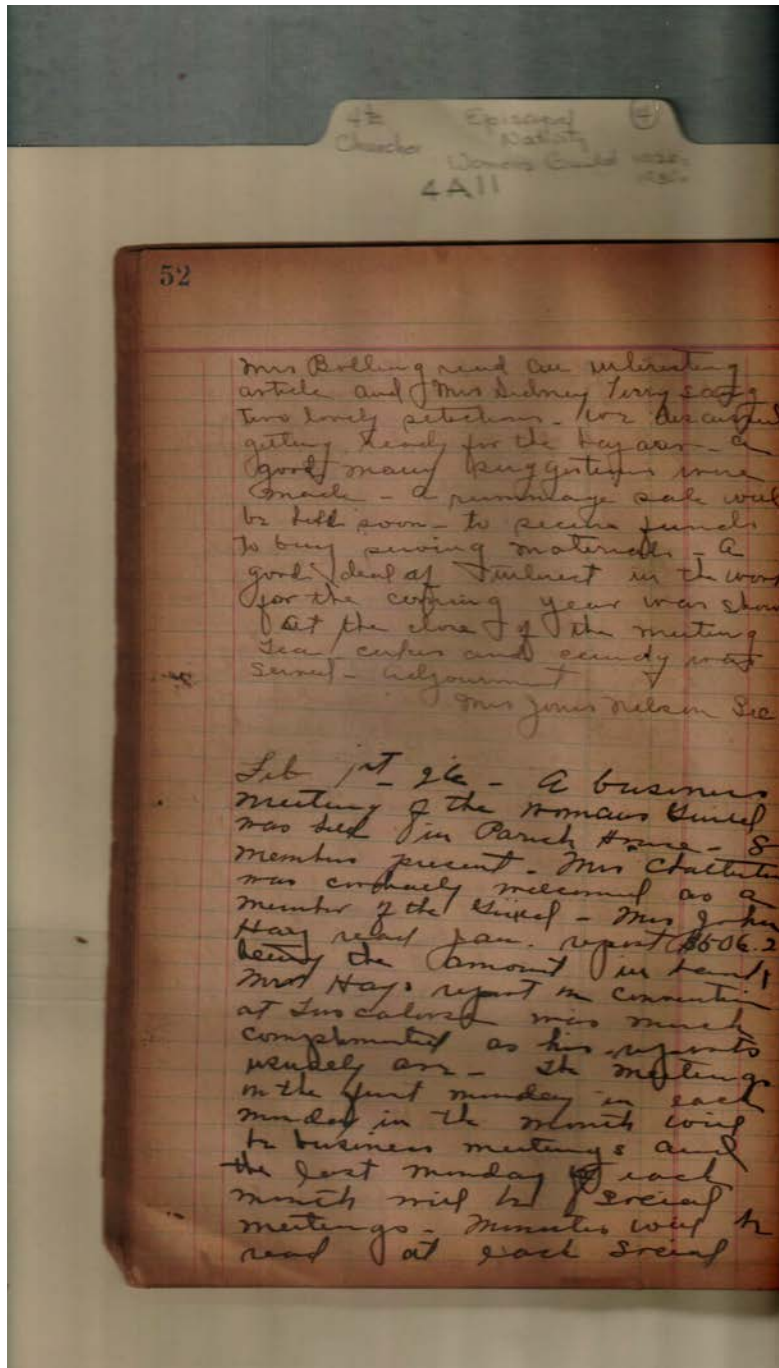 4th Episcopal 4
Churches Nativity
Womens Guild
4A11
52
Mrs Bolling read an interesting
article and Mrs Sidney Terry sang
two lovely selections - we discussed
getting ready for the bazaar - a
good many suggestions were
made - a rummage sale will
be held soon - to secure funds
to buy sewing materials - A
good deal of interest in the work
for the coming year was show
At the close of the meeting
Tea cakes and candy was
served - adjournment
Mrs Jones Nelson Sec
Feb 1st 26 - A business
meeting of the Womans Guild
was held in Parish House - 8
members present - Mrs
was cordially welcomed as a
member of the Guild - Mrs John
Hay read Jan. report $506.2
being the amount in hand,
Mrs Hays report on convention
at Tuscaloosa was much
complimented as his reports
usually are - The meetings
on the first monday in each
monday in the month will
be business meetings and
the last monday of each
month will be social
meetings - Minutes will be
read at each social